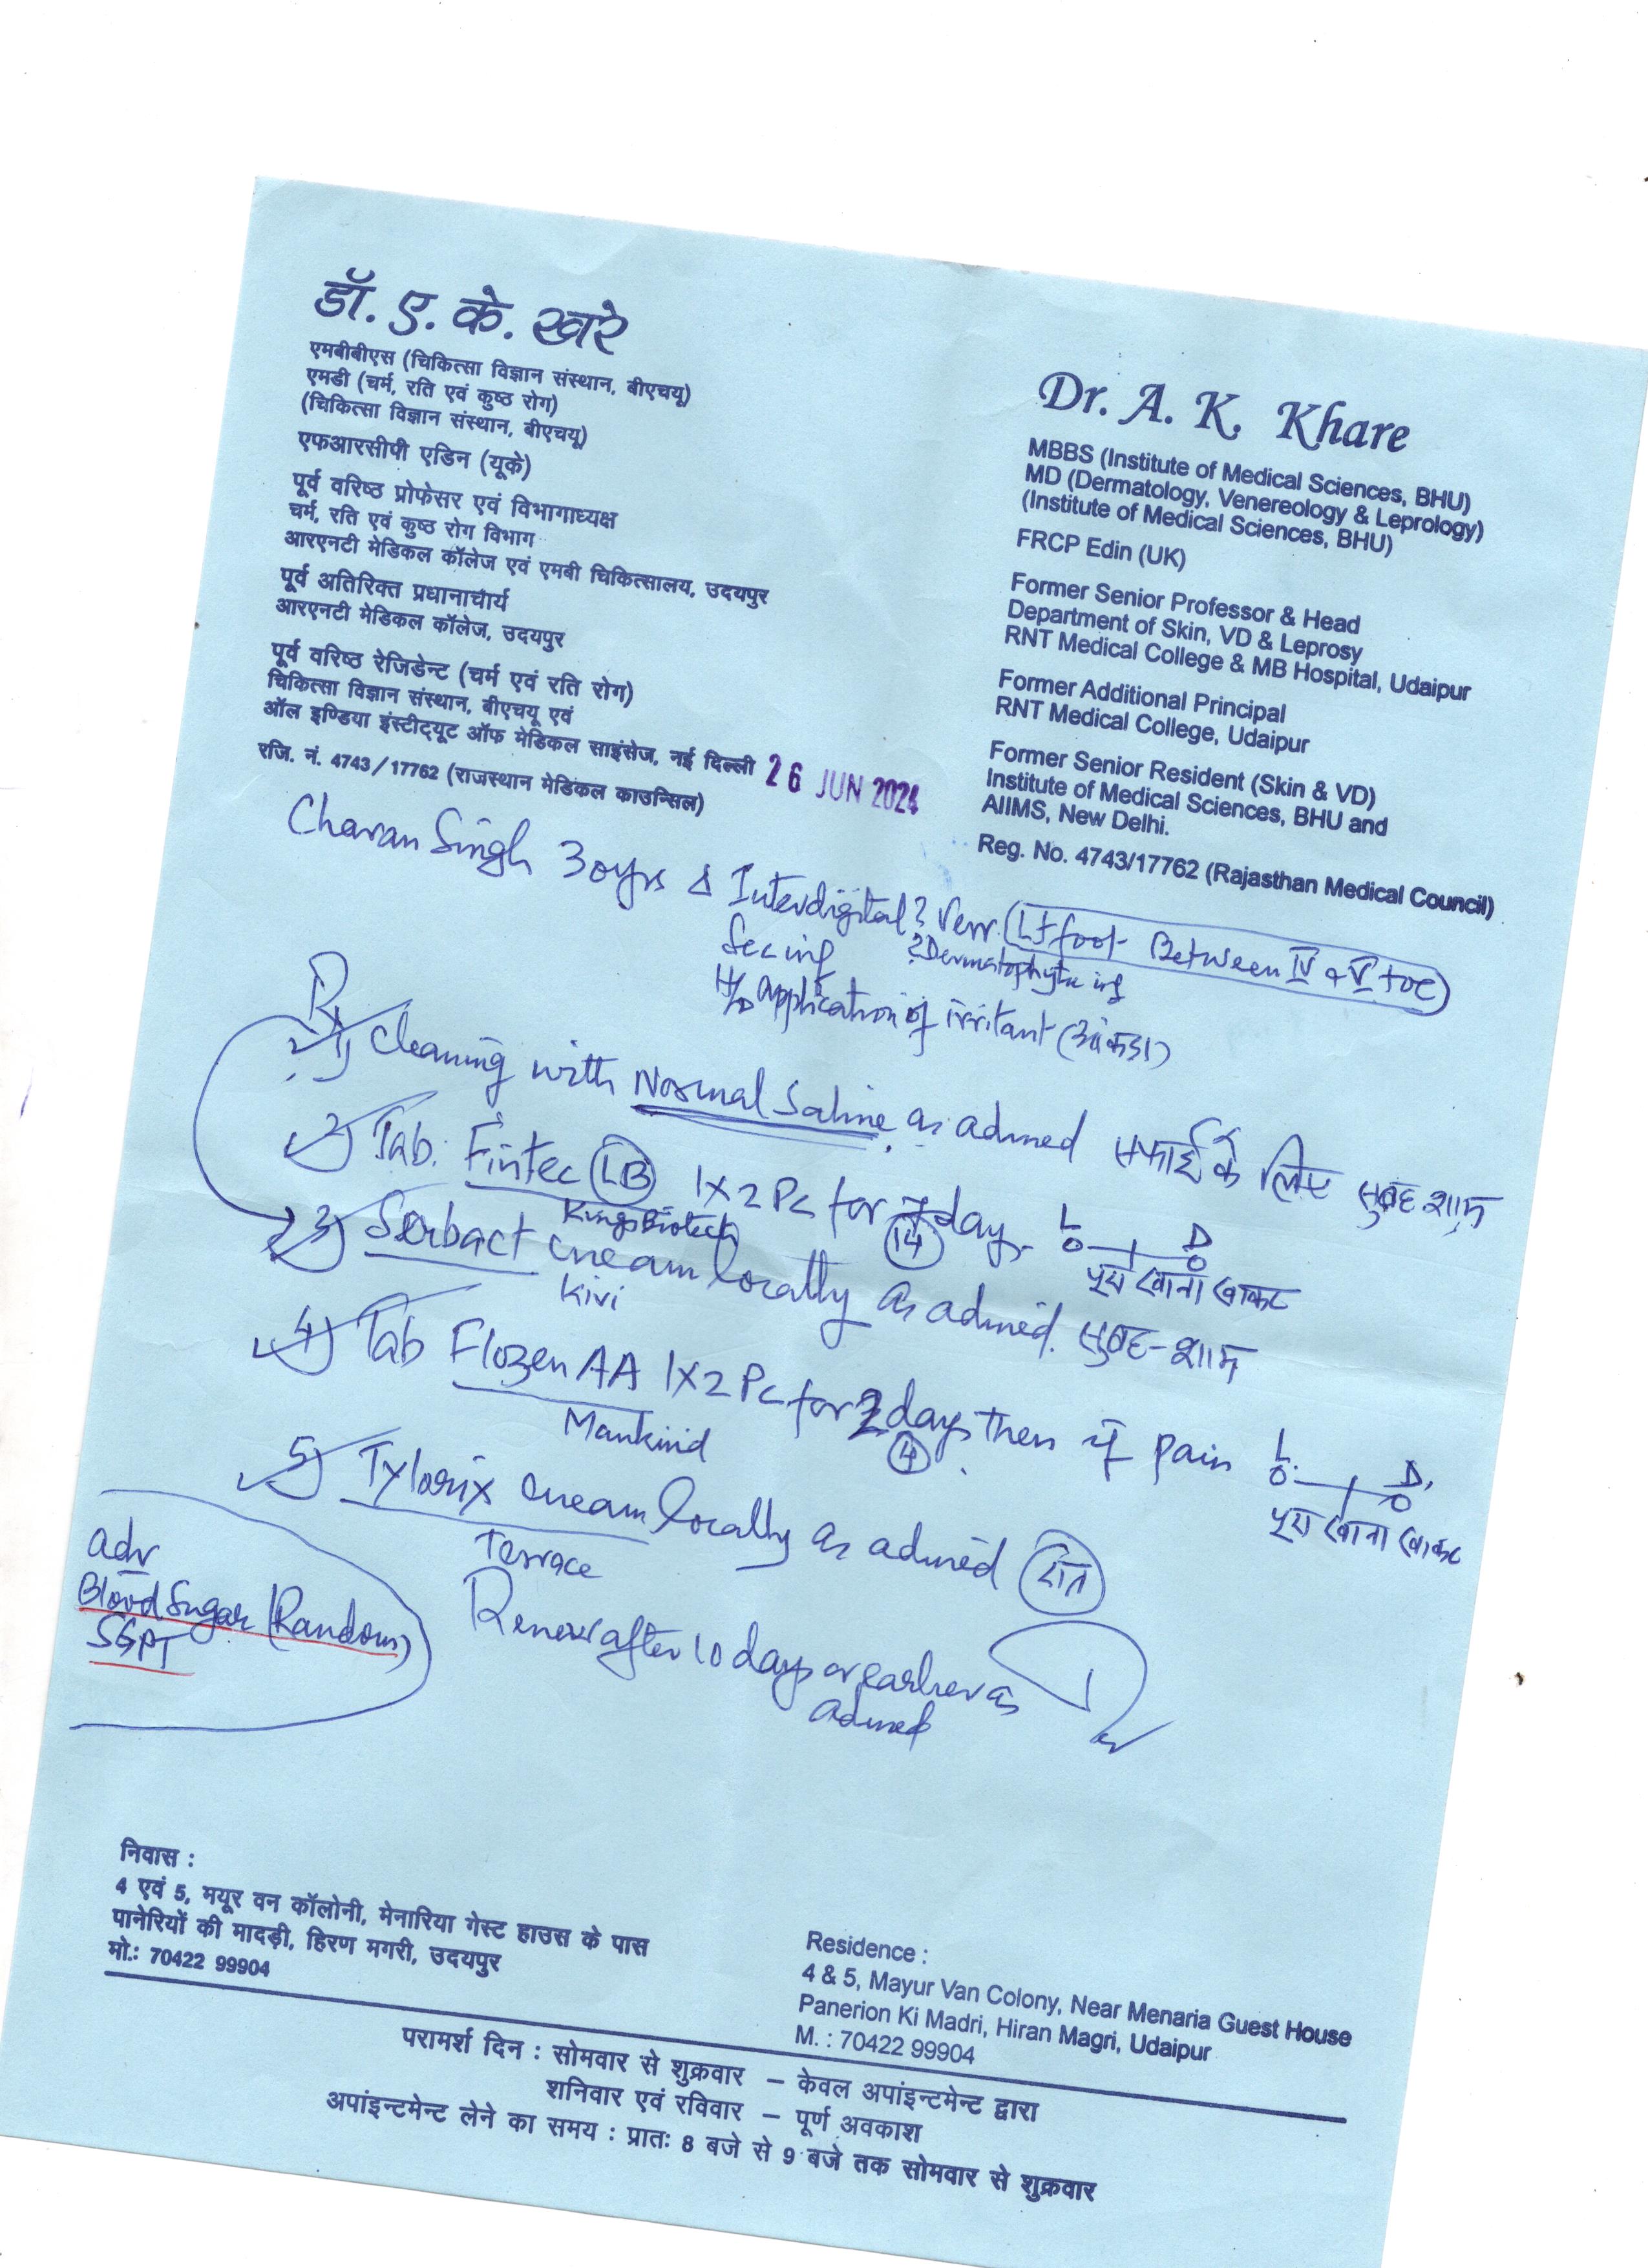 डॉ. ए. के. खरे
एमबीबीएस (चिकित्सा विज्ञान संस्थान, बीएचयू)
एमडी (चर्म, रति एवं कुष्ठ रोग)
(चिकित्सा विज्ञान संस्थान, बीएचयू)
एफआरसीपी एडिन (यूके)
पूर्व वरिष्ठ प्रोफेसर एवं विभागाध्यक्ष
चर्म, रति एवं कुष्ठ रोग विभाग
आरएनटी मेडिकल कॉलेज एवं एमबी चिकित्सालय, उदयपुर
पूर्व अतिरिक्त प्रधानाचार्य
आरएनटी मेडिकल कॉलेज, उदयपुर
पूर्व वरिष्ठ रेजिडेन्ट (चर्म एवं रति रोग)
चिकित्सा विज्ञान संस्थान, बीएचयू एवं
ऑल इण्डिया इंस्टीट्यूट ऑफ मेडिकल साइंसेज, नई दिल्ली
रजि. नं. 4743/17762 (राजस्थान मेडिकल काउन्सिल)
Dr. A. K. Khare
MBBS (Institute of Medical Sciences, BHU)
MD (Dermatology, Venereology & Leprology)
(Institute of Medical Sciences, BHU)
FRCP Edin (UK)
Former Senior Professor & Head
Department of Skin, VD & Leprosy
RNT Medical College & MB Hospital, Udaipur
Former Additional Principal
RNT Medical College, Udaipur
Former Senior Resident (Skin & VD)
Institute of Medical Sciences, BHU and
AIIMS, New Delhi.
Reg. No. 4743/17762 (Rajasthan Medical Council)
26 JUN 2024
Charan Singh 30yrs Interdigital ? Verr. (Lt foot Between IV & V toe)
Sec inf ? Dermatophytic inf
H/o application of irritant (आंकडा)
Rx
1) Cleaning with Normal Saline as advised सफाई के लिए सुबह शाम
2) Tab. Fintec (LB) 1x2 Pc for 7 days L D
Kings Biotech 14 पूरा खाना खाकर
3) Serbact cream locally as advised. सुबह-शाम
Kivi
4) Tab Flozen AA 1x2 Pc for 2 days then if pain L D
Mankind 4 पूरा खाना खाकर
5) Tylorix cream locally as advised रात
Terrace
adv
Blood Sugar (Random)
SGPT
Review after 10 days or earlier as
advised
निवास :
4 एवं 5, मयूर वन कॉलोनी, मेनारिया गेस्ट हाउस के पास
पानेरियों की मादड़ी, हिरण मगरी, उदयपुर
मो.: 70422 99904
Residence :
4 & 5, Mayur Van Colony, Near Menaria Guest House
Panerion Ki Madri, Hiran Magri, Udaipur
M. : 70422 99904
परामर्श दिन : सोमवार से शुक्रवार – केवल अपांइन्टमेन्ट द्वारा
शनिवार एवं रविवार – पूर्ण अवकाश
अपांइन्टमेन्ट लेने का समय : प्रातः 8 बजे से 9 बजे तक सोमवार से शुक्रवार